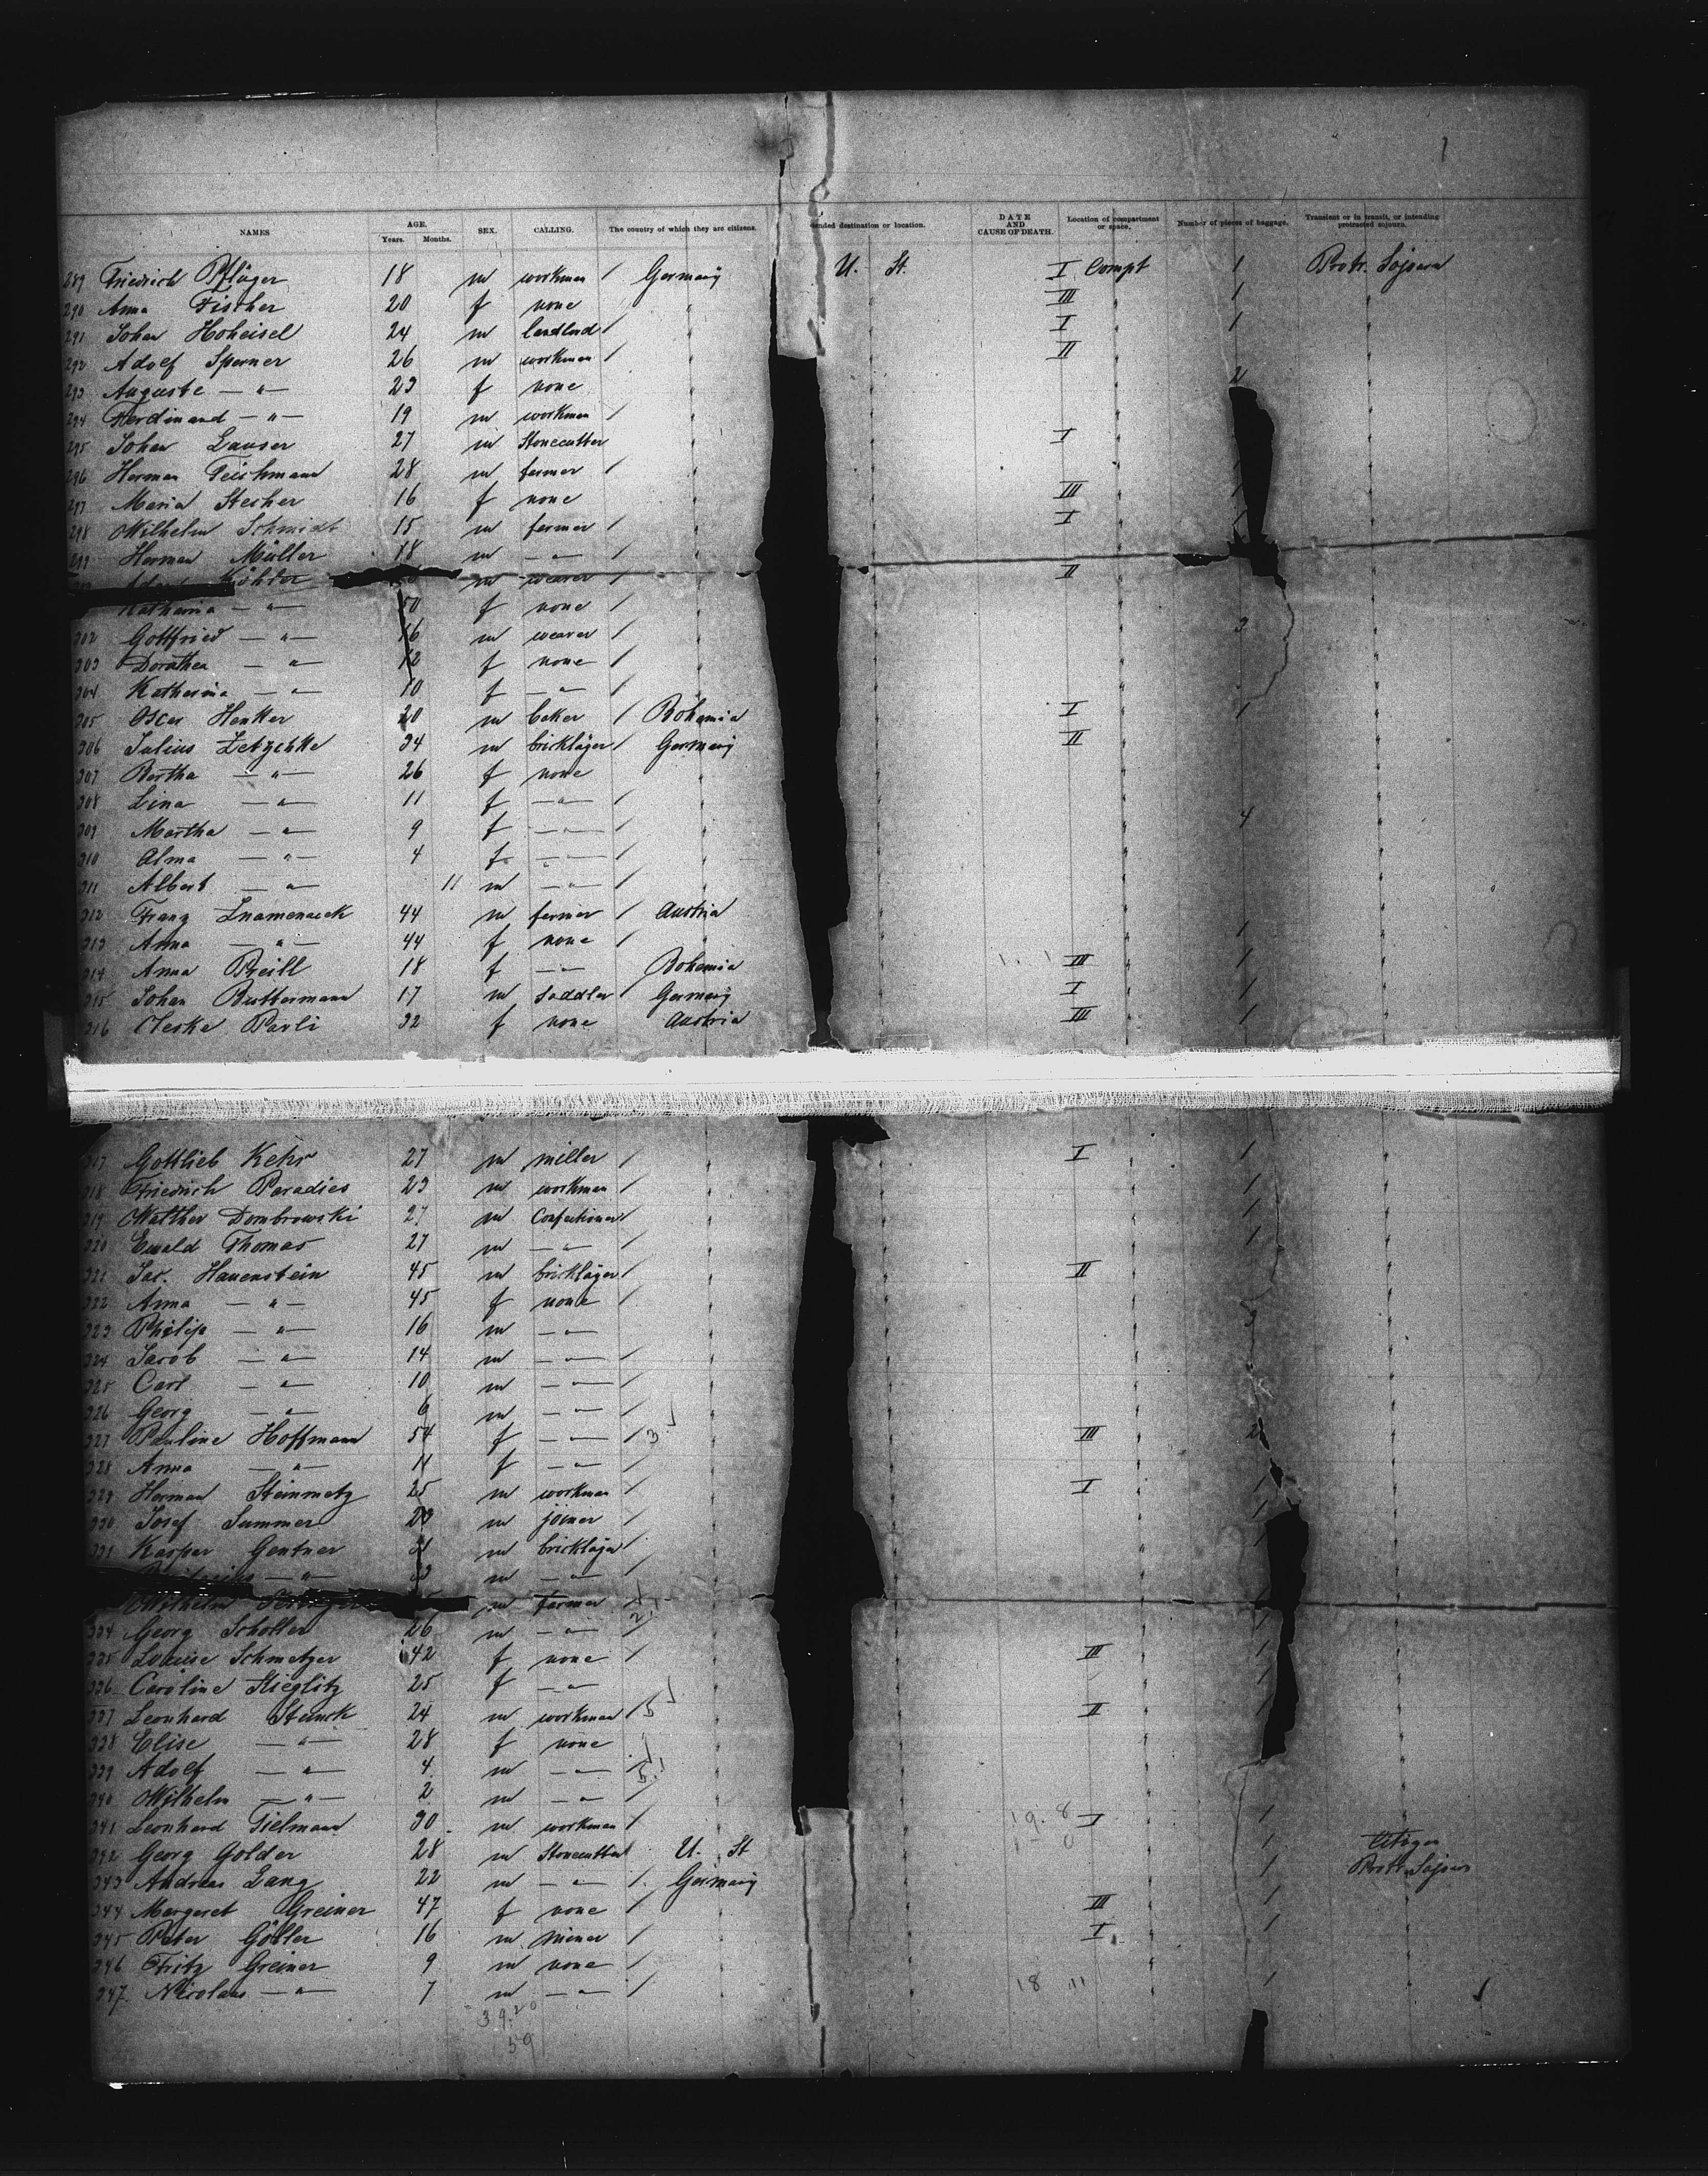 NAMES AGE. Years. Months. SEX. CALLING. The country of which they are citizens. tended destination or location. DATE AND CAUSE OF DEATH. Location of compartment or space. Number of pieces of baggage. Transient or in transit, or intending protracted sojourn.
289 Friedrich Pflüger 18 m workman / Germany U. St. I Compt 1 Protr. Sojourn
290 Anna Fischer 20 f none " III 1
291 Johan Hoheisel 24 m landlord / I 1
292 Adolf Sperner 26 m workman / II
293 Auguste — " — 23 f none 2
294 Ferdinand — " — 19 m workman /
295 Johan Lauser 27 m Stonecutter I
296 Herman Teichmann 28 m farmer /
297 Maria Stecher 16 f none III 1
298 Wilhelm Schmidt 15 m farmer / I 1
299 Herman Müller 18 m — " — /
Köhler m weaver / II
Katharina — " — 50 f none /
302 Gottfried — " — 16 m weaver / 3
303 Dorothea — " — 12 f none /
304 Katharina — " — 10 f — " — /
305 Oscar Henker 20 m baker / Bohemia I 1
306 Julius Zetzschke 34 m bricklayer / Germany II
307 Bertha — " — 26 f none
308 Lina — " — 11 f — " — /
309 Martha — " — 9 f — " — / 4
310 Alma — " — 4 f — " — /
311 Albert — " — 11 m — " — /
312 Franz Znamenacek 44 m farmer / Austria
313 Anna — " — 44 f none / 1
314 Anna Breitl 18 f — " — Bohemia III 1
315 Johan Buttermann 17 m saddler / Germany I 1
316 Pavli 32 f none Austria III 1
317 Gottlieb Kehr 27 m miller / I 1
318 Friedrich Paradies 23 m workman / 1
319 Walther Dombrowski 27 m Confectioner / 1
320 Ewald Thomas 27 m — " — / 1
321 Jac. Hauenstein 45 m bricklayer / II
322 Anna — " — 45 f none / 5
323 Philip — " — 16 m — " —
324 Jacob — " — 14 m — " — /
325 Carl — " — 10 m — " — /
326 Georg — " — 6 m — " — /
327 Pauline Hoffmann 54 f — " — / 3 III 2
328 Anna — " — 11 f — " — /
329 Herman Steinmetz 25 m workman / I 1
330 Josef Summer 23 m joiner / 1
331 Kaspar Gentner 31 m bricklayer / 1
— " — m — " — /
Wilhelm m farmer
334 Georg Scholler 26 m — " — 1
335 Louise Schmetzer 42 f none / III 1
336 Caroline Stieglitz 25 f — " — 1
337 Leonhard Stunck 24 m workman / II 1
338 Elise — " — 28 f none
339 Adolf — " — 4 m — " — /
340 Wilhelm — " — 2 m — " — /
341 Leonhard Tielmann 30 m workman / 19. 8 I 1
342 Georg Golder 28 m Stonecutter U. St 1 Citizen
343 Andreas Lang 22 m — " — / Germany 1 Protr. Sojourn
344 Margaret Greiner 47 f none / III 1
345 Peter Göller 16 m miner / I 1
346 Fritz Greiner 9 m none /
347 Nicolaus — " — 7 m — " — / 18 11 1
39. 20
59